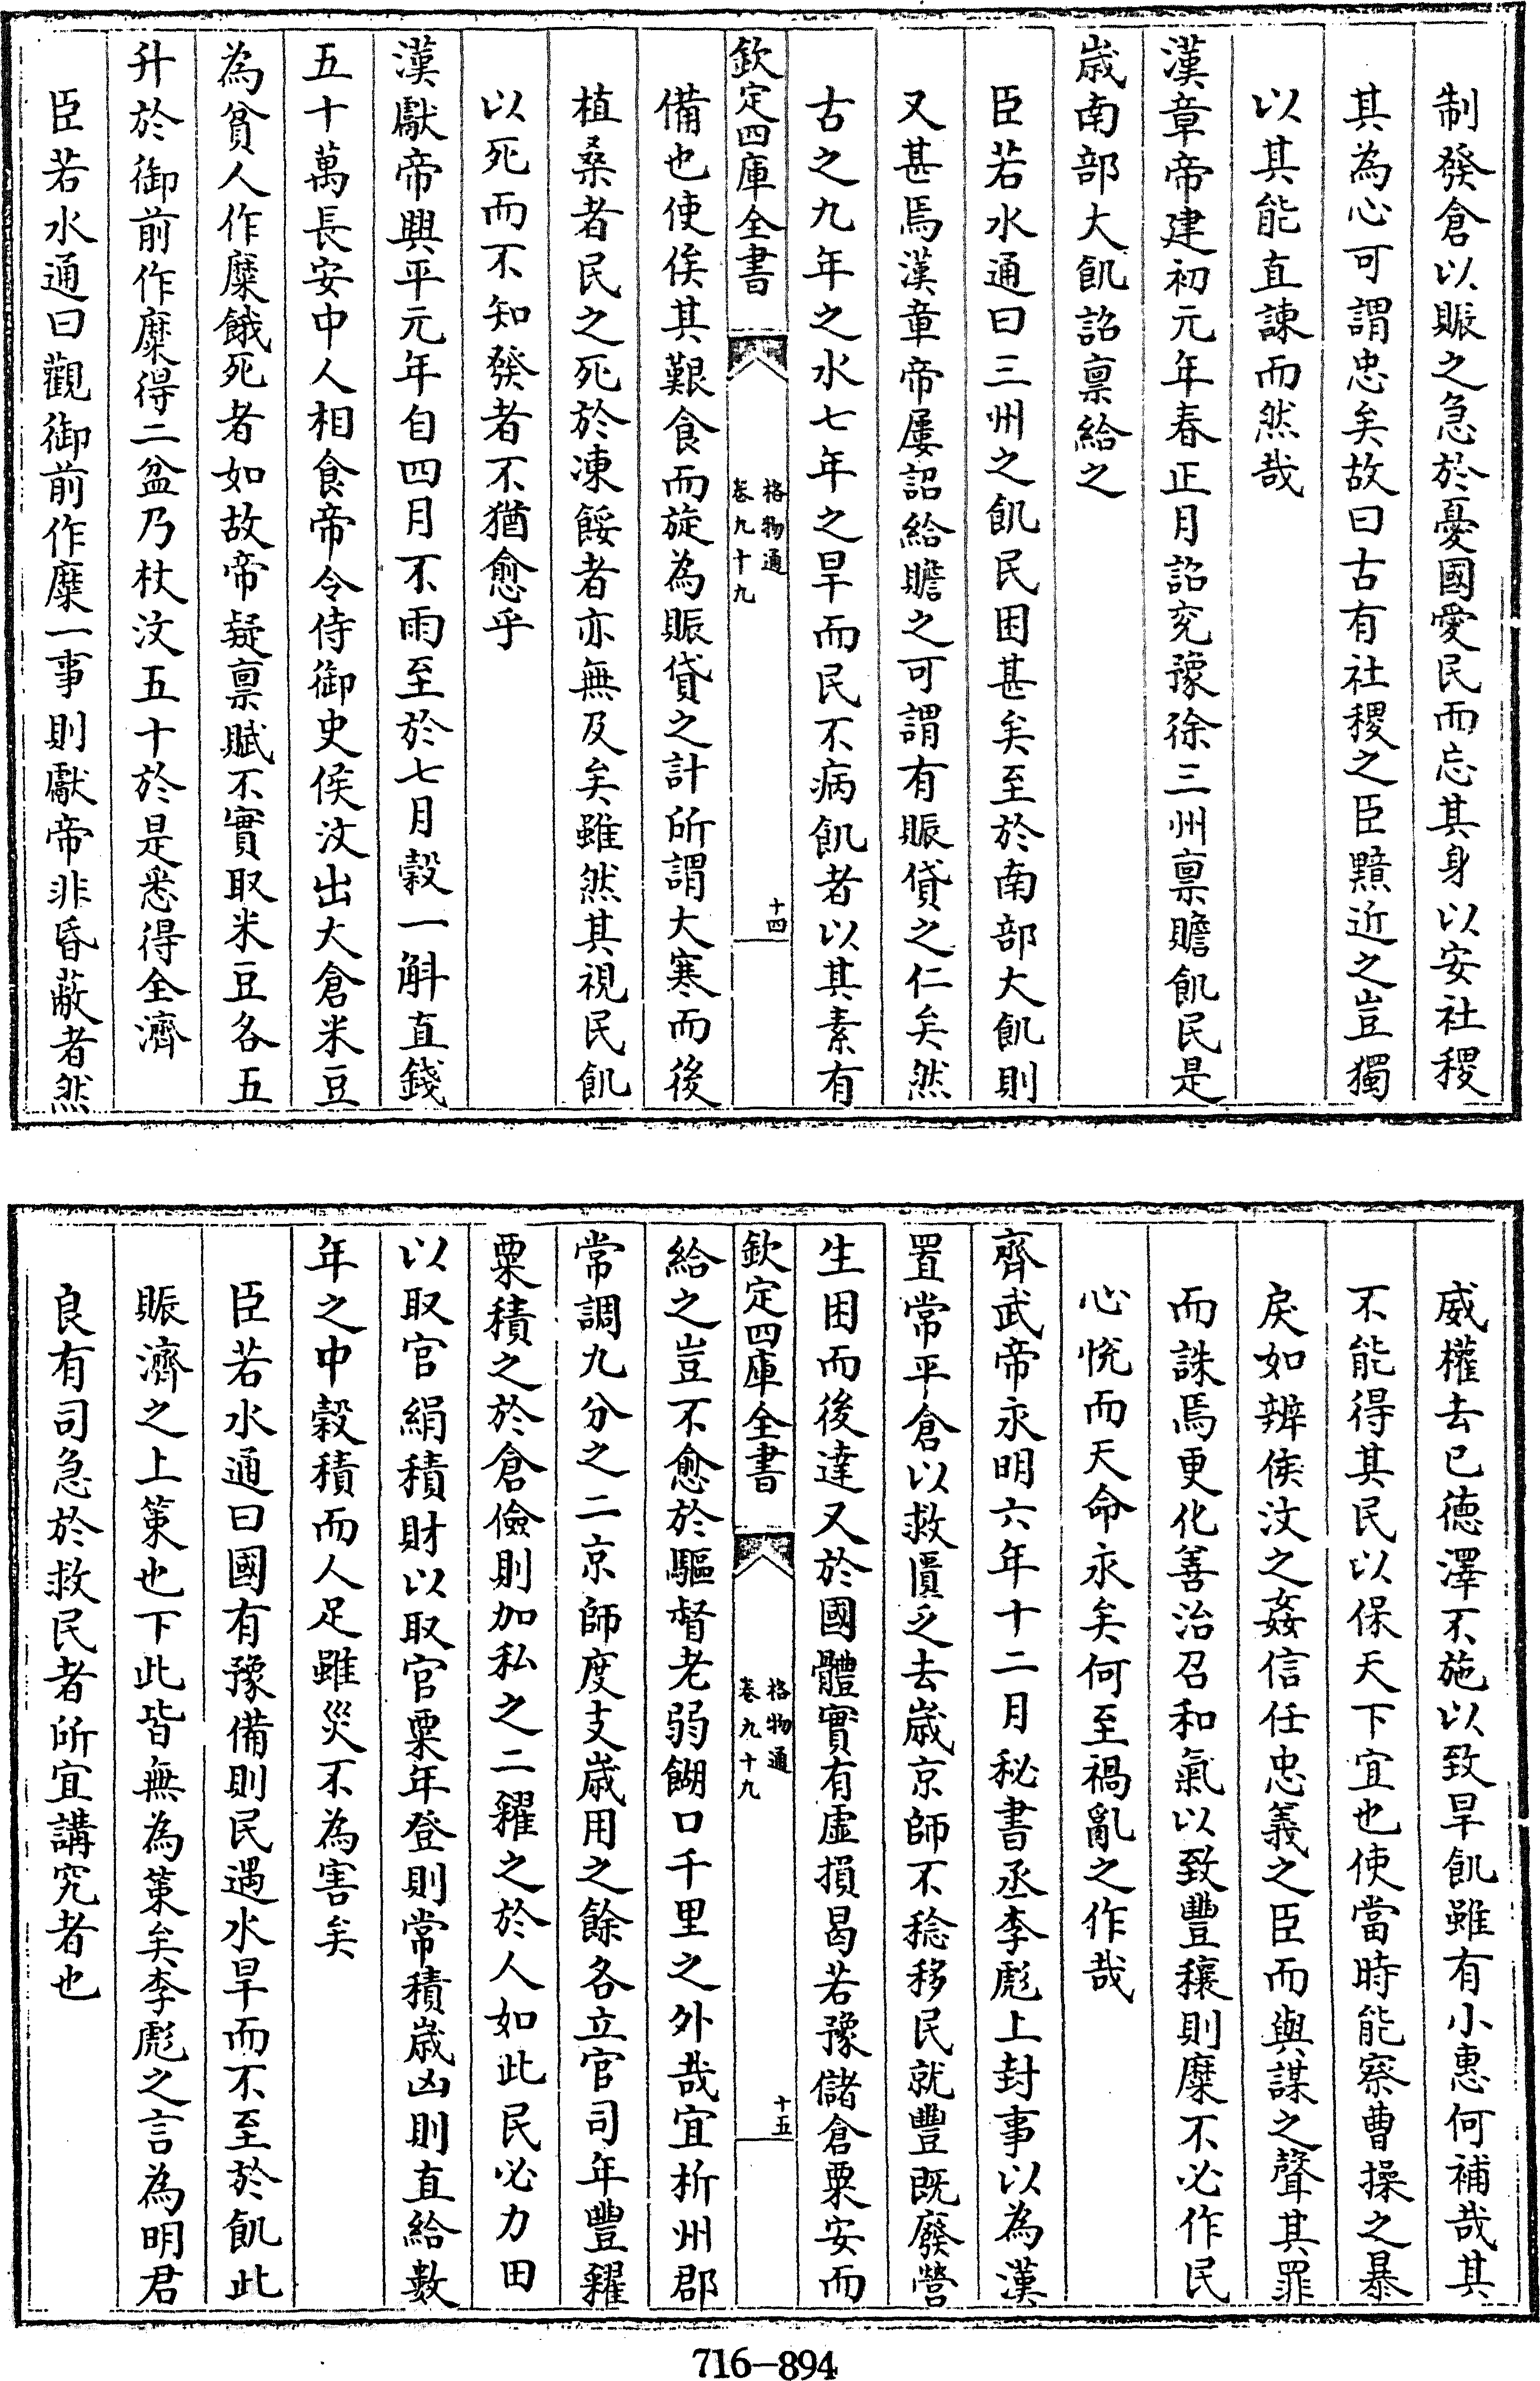 制發倉以賑之急於憂國愛民而忘其身以安社稷
其為心可謂忠矣故曰古有社稷之臣黯近之豈獨
以其能直諫而然哉
漢章帝建初元年春正月詔兖豫徐三州禀贍飢民是
歲南部大飢詔禀給之
臣若水通曰三州之飢民困甚矣至於南部大飢則
又甚焉漢章帝屢詔給贍之可謂有賑貸之仁矣然
古之九年之水七年之旱而民不病飢者以其素有
欽定四庫全書
格物通
卷九十九
十四
備也使俟其艱食而旋為賑貸之計所謂大寒而後
植桑者民之死於凍餒者亦無及矣雖然其視民飢
以死而不知發者不猶愈乎
漢獻帝興平元年自四月不雨至於七月穀一斛直錢
五十萬長安中人相食帝令侍御史侯汶出大倉米豆
為貧人作糜餓死者如故帝疑禀賦不實取米豆各五
升於御前作糜得二盆乃杖汶五十於是悉得全濟
臣若水通曰觀御前作糜一事則獻帝非昏蔽者然
威權去已德澤不施以致旱飢雖有小惠何補哉其
不能得其民以保天下宜也使當時能察曹操之暴
戾如辨侯汶之姦信任忠義之臣而與謀之聲其罪
而誅焉更化善治召和氣以致豐穰則糜不必作民
心悅而天命永矣何至禍亂之作哉
齊武帝永明六年十二月秘書丞李彪上封事以為漢
置常平倉以救匱乏去歲京師不稔移民就豐既廢營
生困而後達又於國體實有虛損曷若豫儲倉粟安而
欽定四庫全書
格物通
卷九十九
十五
給之豈不愈於驅督老弱餬口千里之外哉宜析州郡
常調九分之二京師度支歲用之餘各立官司年豐糴
粟積之於倉儉則加私之二糴之於人如此民必力田
以取官絹積財以取官粟年登則常積歲凶則直給數
年之中穀積而人足雖災不為害矣
臣若水通曰國有豫備則民遇水旱而不至於飢此
賑濟之上策也下此皆無為策矣李彪之言為明君
良有司急於救民者所宜講究者也
716-894